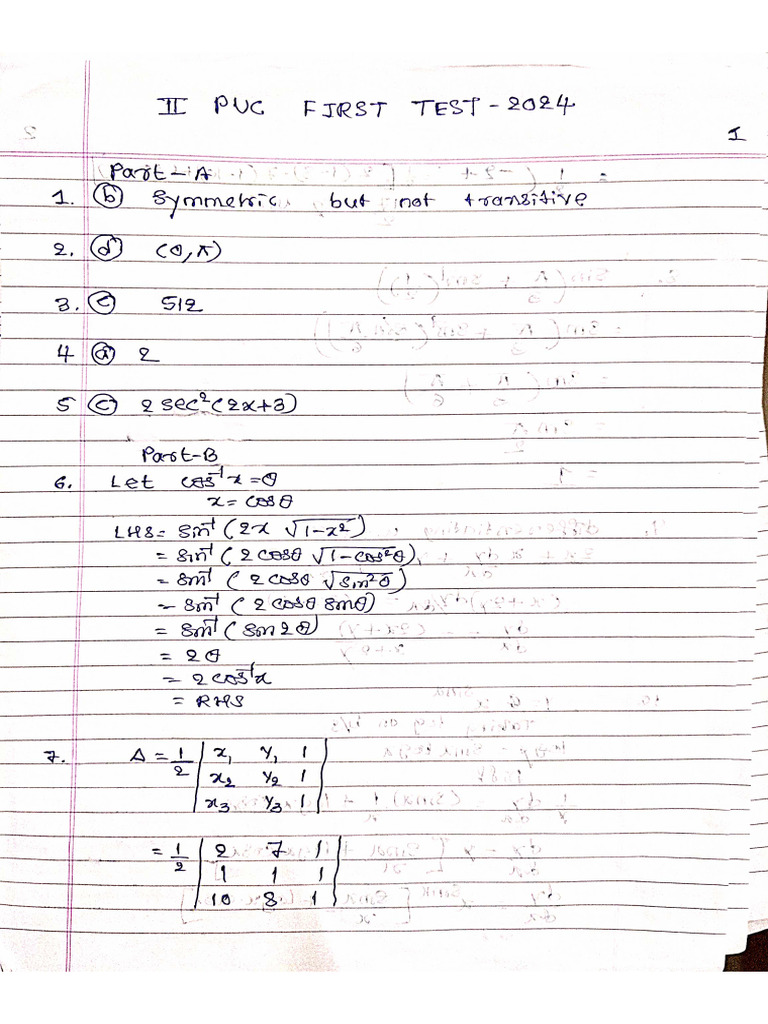 II PUC FIRST TEST - 2024
1
Part - A
1. (b) Symmetric but not transitive
2. (d) (0, π)
3. (c) 512
4 (a) 2
5 (c) 2 sec²(2x+3)
Part-B
6. Let cos⁻¹x = θ
x = cosθ
LHS = sin⁻¹ (2x √(1-x²))
= sin⁻¹ (2 cosθ √(1-cos²θ))
= sin⁻¹ (2 cosθ √(sin²θ))
= sin⁻¹ (2 cosθ sinθ)
= sin⁻¹ (sin 2θ)
= 2θ
= 2cos⁻¹x
= RHS
7. Δ = 1/2 | x₁ y₁ 1 |
| x₂ y₂ 1 |
| x₃ y₃ 1 |
= 1/2 | 2 7 1 |
| 1 1 1 |
| 10 8 1 |